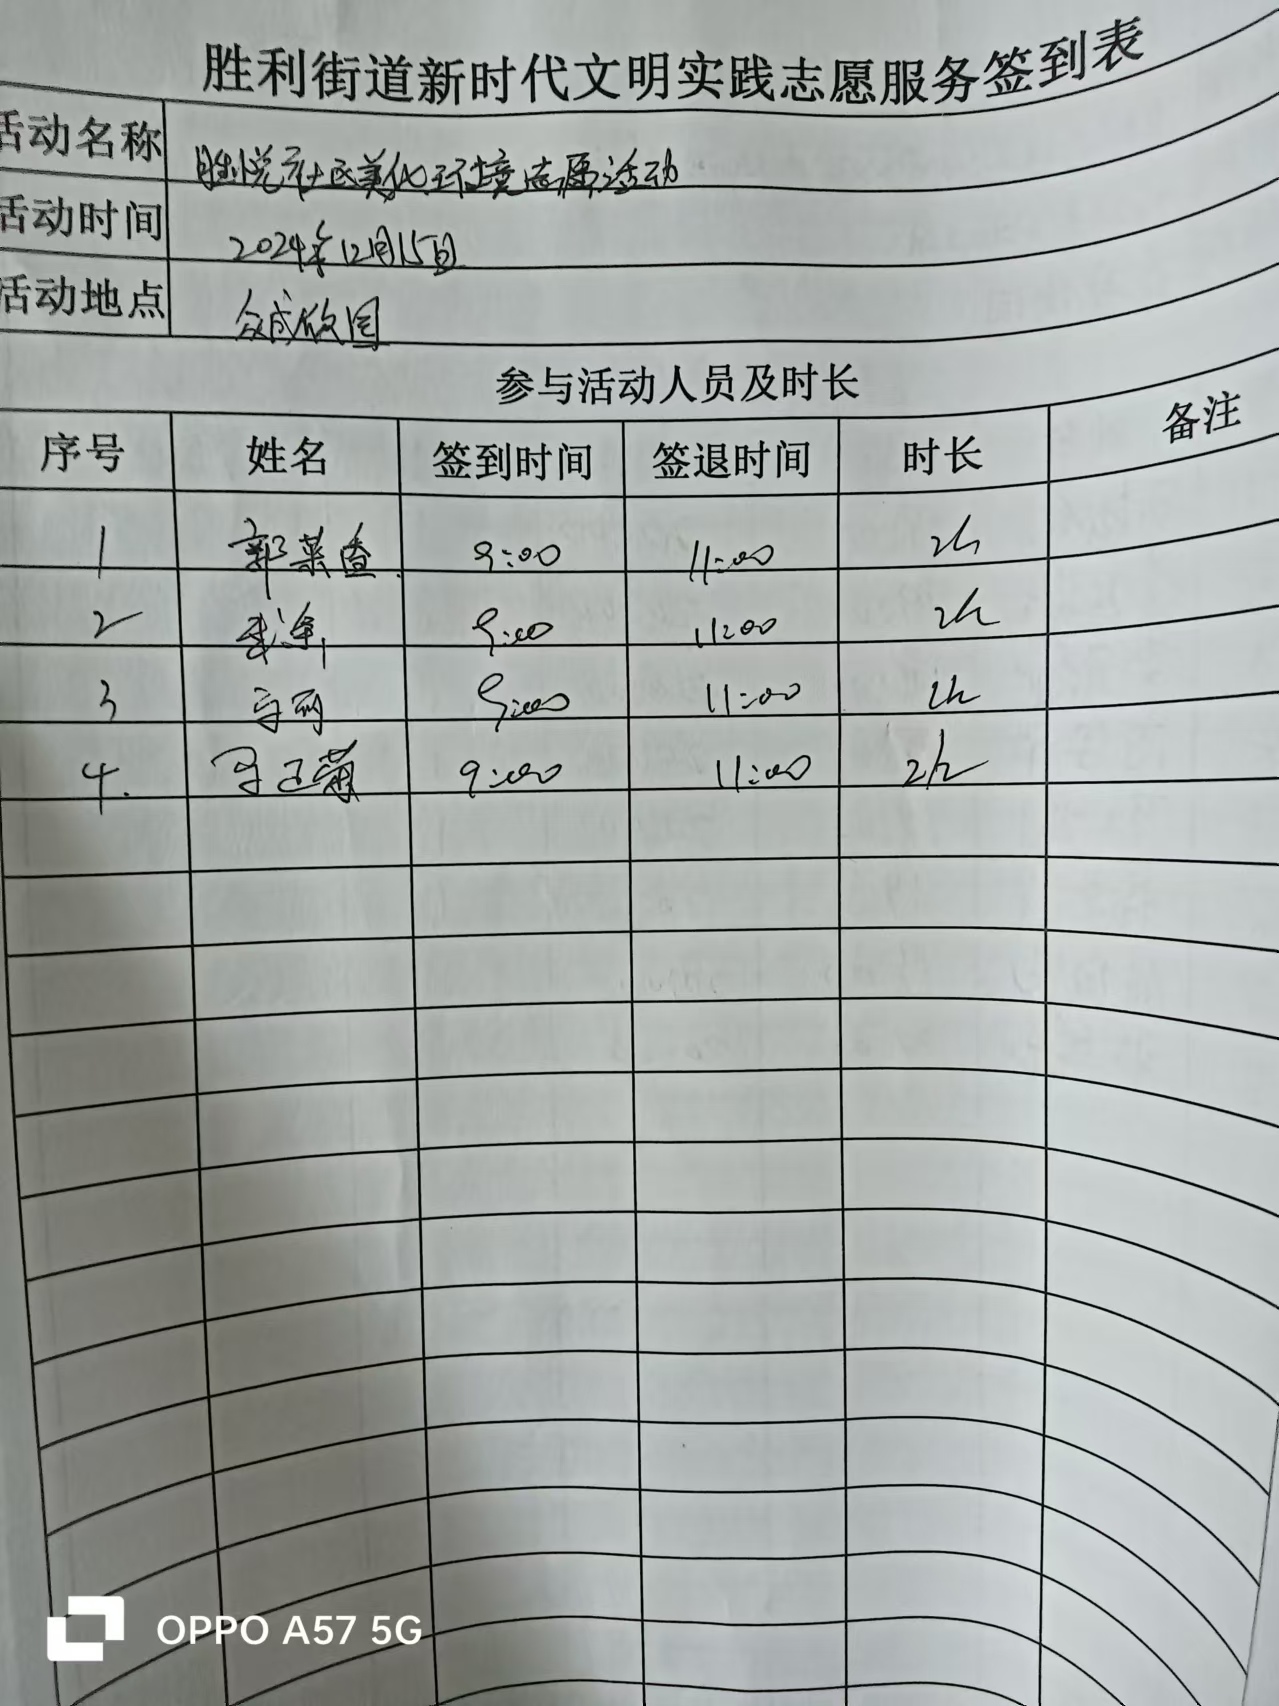 胜利街道新时代文明实践志愿服务签到表
活动名称 胜悦社区美化环境志愿活动
活动时间 2024年12月15日
活动地点 众成
参与活动人员及时长
序号 姓名 签到时间 签退时间 时长 备注
1 郭菜 9:00 11:00 2h
2 9:00 11:00 2h
3 9:00 11:00 2h
4. 9:00 11:00 2h
OPPO A57 5G